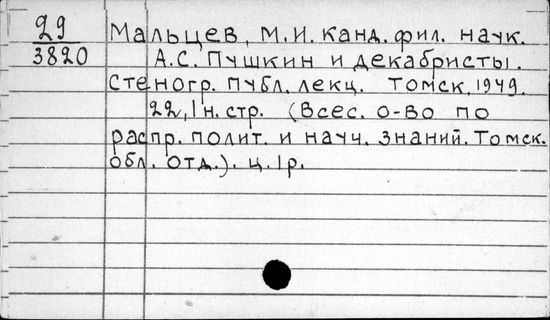 29
3820
Мальцев, М.И. канд. фил. наук.
А.С. Пушкин и декабристы.
Стеногр. публ. лекц. Томск, 1949.
22, 1 н. стр. (Всес. о-во по
распр. полит. и науч. знаний. Томск.
обл. отд.). ц. 1р.